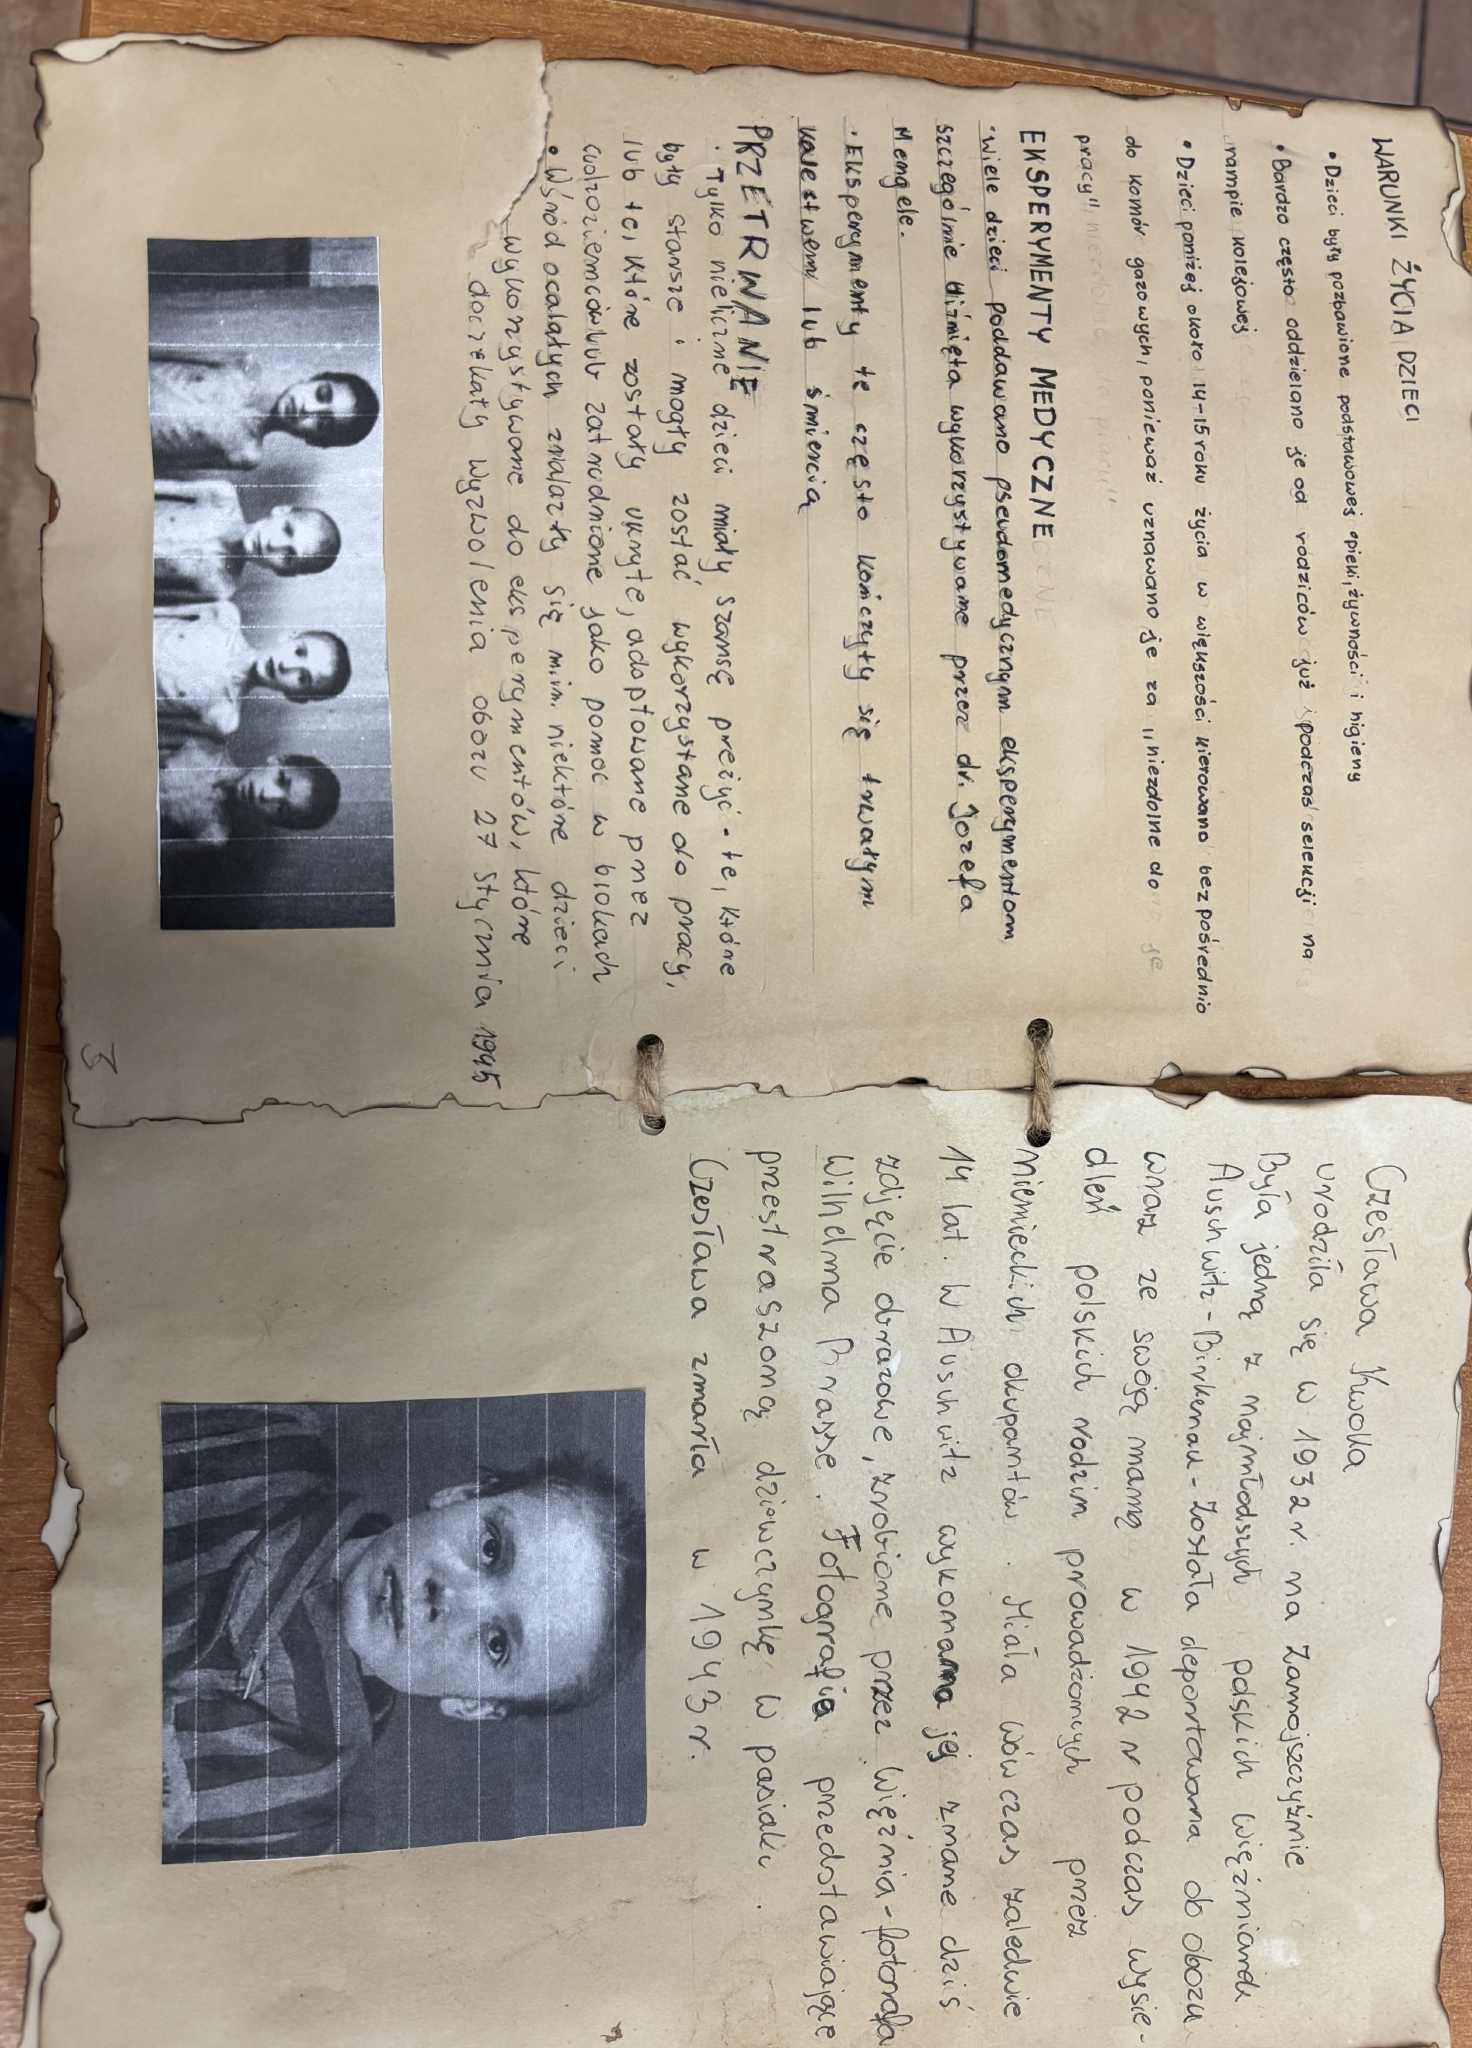 WARUNKI ŻYCIA DZIECI
• Dzieci były pozbawione podstawowej opieki, żywności i higieny
• Bardzo często oddzielano je od rodziców już podczas selekcji na
rampie kolejowej
• Dzieci poniżej około 14-15 roku życia w większości kierowano bezpośrednio
do komór gazowych, ponieważ uznawano je za "niezdolne do
pracy"
EKSPERYMENTY MEDYCZNE
• Wiele dzieci poddawano pseudomedycznym eksperymentom
szczególnie bliźnięta wykorzystywane przez dr. Jozefa
Mengele.
• Eksperymenty te często kończyły się trwałym
kalectwem lub śmiercią
PRZETRWANIE
• Tylko nieliczne dzieci miały szansę przeżyć - te, które
były starsze i mogły zostać wykorzystane do pracy,
lub te, które zostały ukryte, adoptowane przez
cudzoziemców lub zatrudnione jako pomoc w blokach
• Wśród ocalałych znalazły się m.in. niektóre dzieci
wykorzystywane do eksperymentów, które
doczekały wyzwolenia obozu 27 stycznia 1945
3
Czesława Kwoka
urodziła się w 1932 r. na Zamojszczyźnie
Była jedną z najmłodszych polskich więźniarek
Auschwitz-Birkenau - Została deportowana do obozu
wraz ze swoją mamą w 1942 r podczas wysie-
dleń polskich rodzin prowadzonych przez
niemieckich okupantów. Miała wówczas zaledwie
14 lat. W Auschwitz wykonana jej znane dziś
zdjęcie obrazowe, zrobione przez więźnia-fotorafa
Wilhelma Brasse. Fotografia przedstawiające
przestraszoną dziewczynkę w pasiaku.
Czesława zmarła w 1943 r.